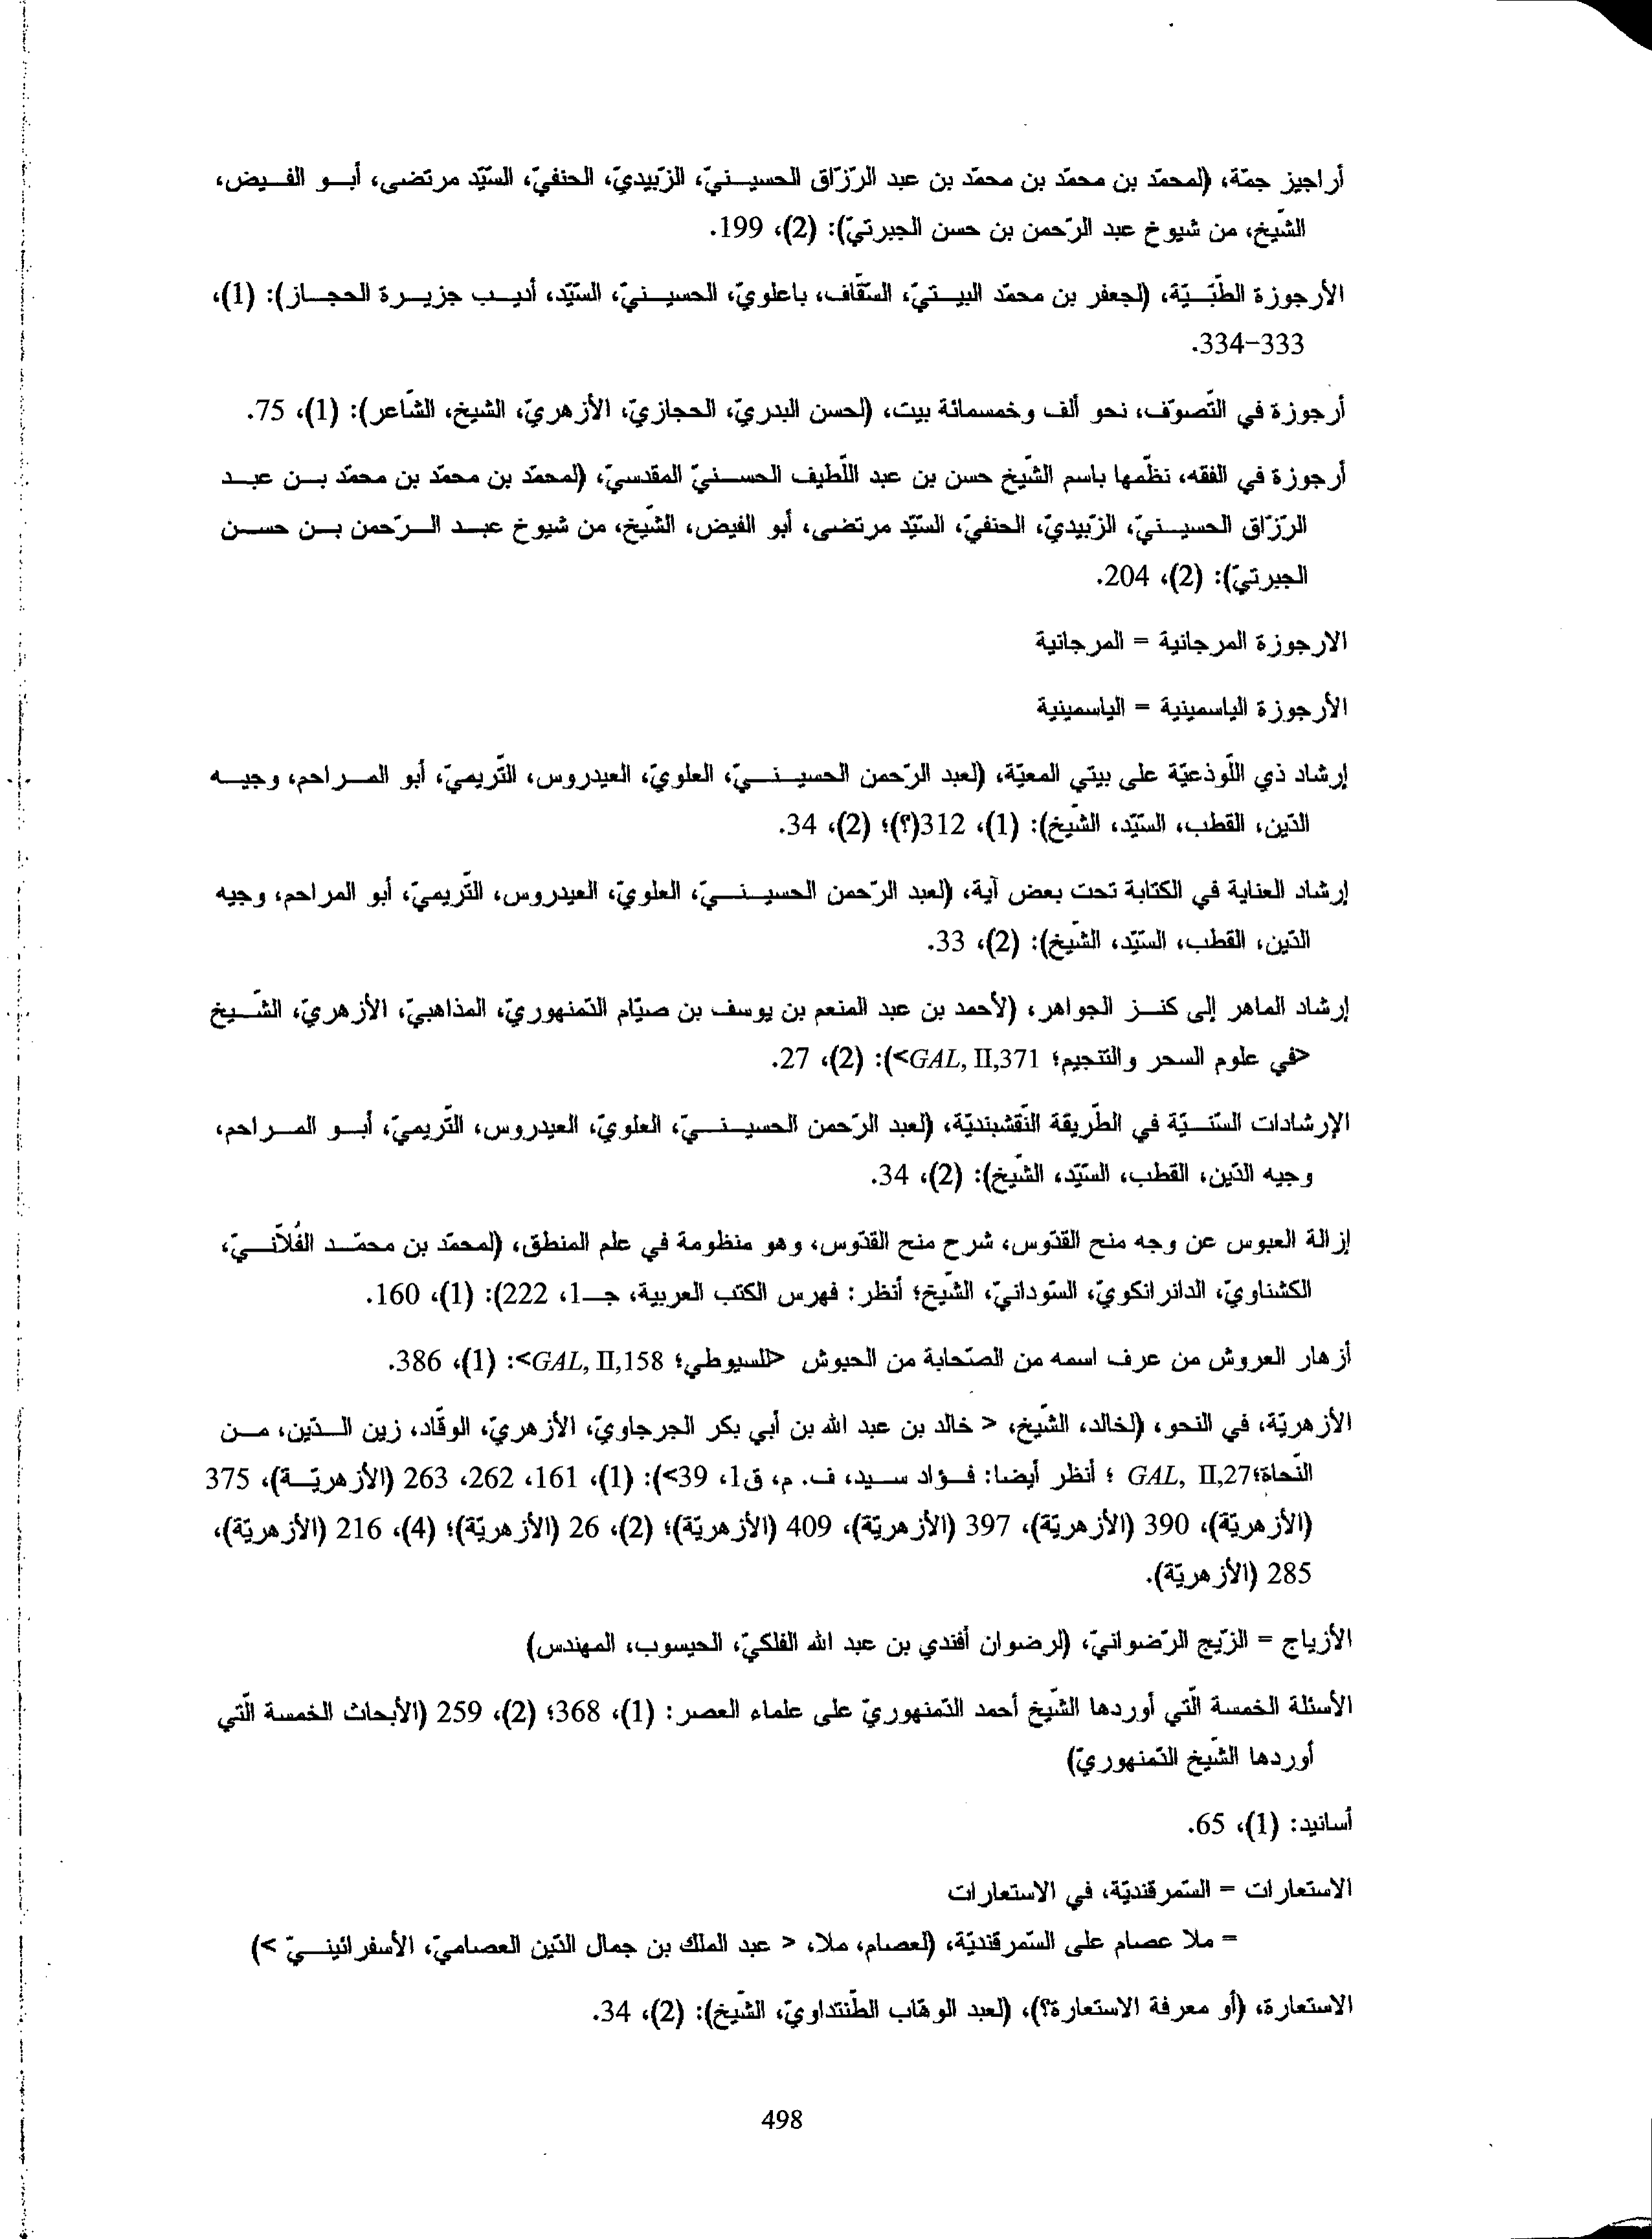 أراجيز جمّة، (لمحمّد بن محمّد بن محمّد بن عبد الرّزّاق الحسينيّ، الزّبيديّ، الحنفيّ، السّيّد مرتضى، أبو الفيض،
الشّيخ، من شيوخ عبد الرّحمن بن حسن الجبرتيّ): (2)، 199.
الأرجوزة الطّبّيّة، (لجعفر بن محمّد البيتيّ، السّقّاف، باعلويّ، الحسينيّ، السّيّد، أديب جزيرة الحجاز): (1)،
333-334.
أرجوزة في التّصوّف، نحو ألف وخمسمائة بيت، (لحسن البدريّ، الحجازيّ، الأزهريّ، الشيخ، الشّاعر): (1)، 75.
أرجوزة في الفقه، نظّمها باسم الشّيخ حسن بن عبد اللّطيف الحسنيّ المقدسيّ، (لمحمّد بن محمّد بن محمّد بن عبد
الرّزّاق الحسينيّ، الزّبيديّ، الحنفيّ، السّيّد مرتضى، أبو الفيض، الشّيخ، من شيوخ عبد الرّحمن بن حسن
الجبرتيّ): (2)، 204.
الارجوزة المرجانية = المرجانية
الأرجوزة الياسمينية = الياسمينية
إرشاد ذي اللّوذعيّة على بيتي المعيّة، (لعبد الرّحمن الحسينيّ، العلويّ، العيدروس، التّريميّ، أبو المراحم، وجيه
الدّين، القطب، السّيّد، الشّيخ): (1)، 312(؟)؛ (2)، 34.
إرشاد العناية في الكتابة تحت بعض آية، (لعبد الرّحمن الحسينيّ، العلويّ، العيدروس، التّريميّ، أبو المراحم، وجيه
الدّين، القطب، السّيّد، الشّيخ): (2)، 33.
إرشاد الماهر إلى كنز الجواهر، (لأحمد بن عبد المنعم بن يوسف بن صيّام الدّمنهوريّ، المذاهبيّ، الأزهريّ، الشّيخ
<في علوم السحر والتنجيم؛ GAL, II,371>): (2)، 27.
الإرشادات السّنيّة في الطّريقة النّقشبنديّة، (لعبد الرّحمن الحسينيّ، العلويّ، العيدروس، التّريميّ، أبو المراحم،
وجيه الدّين، القطب، السّيّد، الشّيخ): (2)، 34.
إزالة العبوس عن وجه منح القدّوس، شرح منح القدّوس، وهو منظومة في علم المنطق، (لمحمّد بن محمّد الفُلاّنيّ،
الكشناويّ، الدانرانكويّ، السّودانيّ، الشّيخ؛ أنظر: فهرس الكتب العربية، جـ1، 222): (1)، 160.
أزهار العروش من عرف اسمه من الصّحابة من الحبوش <للسيوطي؛ GAL, II,158>: (1)، 386.
الأزهريّة، في النحو، (لخالد، الشّيخ، < خالد بن عبد الله بن أبي بكر الجرجاويّ، الأزهريّ، الوقّاد، زين الدّين، من
النّحاة؛GAL, II,27 ؛ أنظر أيضا: فؤاد سيد، ف. م، ق1، 39>): (1)، 161، 262، 263 (الأزهريّة)، 375
(الأزهريّة)، 390 (الأزهريّة)، 397 (الأزهريّة)، 409 (الأزهريّة)؛ (2)، 26 (الأزهريّة)؛ (4)، 216 (الأزهريّة)،
285 (الأزهريّة).
الأزياج = الزّيج الرّضوانيّ، (لرضوان أفندي بن عبد الله الفلكيّ، الحيسوب، المهندس)
الأسئلة الخمسة الّتي أوردها الشّيخ أحمد الدّمنهوريّ على علماء العصر: (1)، 368؛ (2)، 259 (الأبحاث الخمسة الّتي
أوردها الشّيخ الدّمنهوريّ)
أسانيد: (1)، 65.
الاستعارات = السّمرقنديّة، في الاستعارات
= ملا عصام على السّمرقنديّة، (لعصام، ملا، < عبد الملك بن جمال الدّين العصاميّ، الأسفرائينيّ >)
الاستعارة، (أو معرفة الاستعارة؟)، (لعبد الوهّاب الطّنتداويّ، الشّيخ): (2)، 34.
498